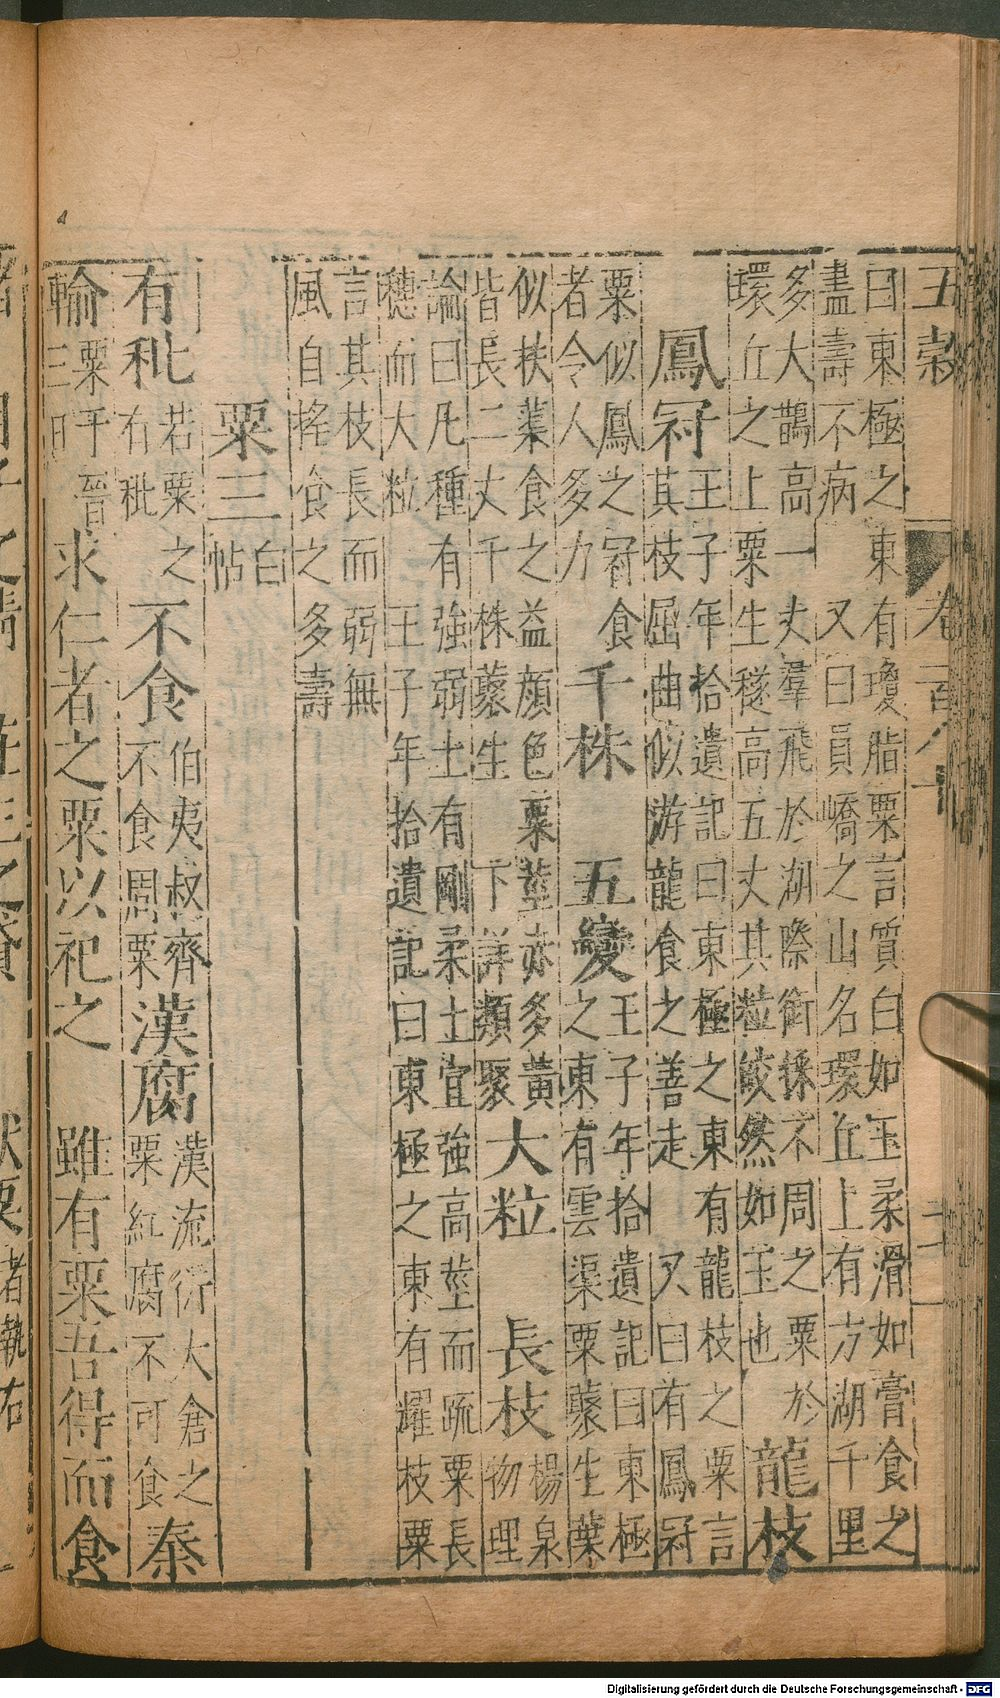 五穀 卷百八十 二
曰東極之東有瓊脂粟言質白如玉柔滑如膏食之
盡壽不病 又曰員嶠之山名環丘上有方湖千里
多大鵲高一丈羣飛於湖際銜採不周之粟於
環丘之上粟生穟高五丈其粒皎然如玉也
龍枝
王子年拾遺記曰東極之東有龍枝之粟言
其枝屈曲似游龍食之善走 又曰有鳳冠
鳳冠
粟似鳳之冠食
者令人多力
千株 五變
王子年拾遺記曰東極
之東有雲渠粟藂生葉
似扶蕖食之益顔色粟莖亦多黃
皆長二丈千株藂生 下詳類聚
大粒 長枝
楊泉
物理
論曰凡種有強弱土有剛柔土宜強高莖而疏粟長
穗而大粒 王子年拾遺記曰東極之東有耀枝粟
言其枝長而弱無
風自搖食之多壽
粟三
白
帖
有秕
若粟之
有秕
不食
伯夷叔齊
不食周粟
漢腐
漢流衍大倉之
粟紅腐不可食
秦
輸
粟于晉
求仁者之粟以祀之 雖有粟吾得而食
者執右